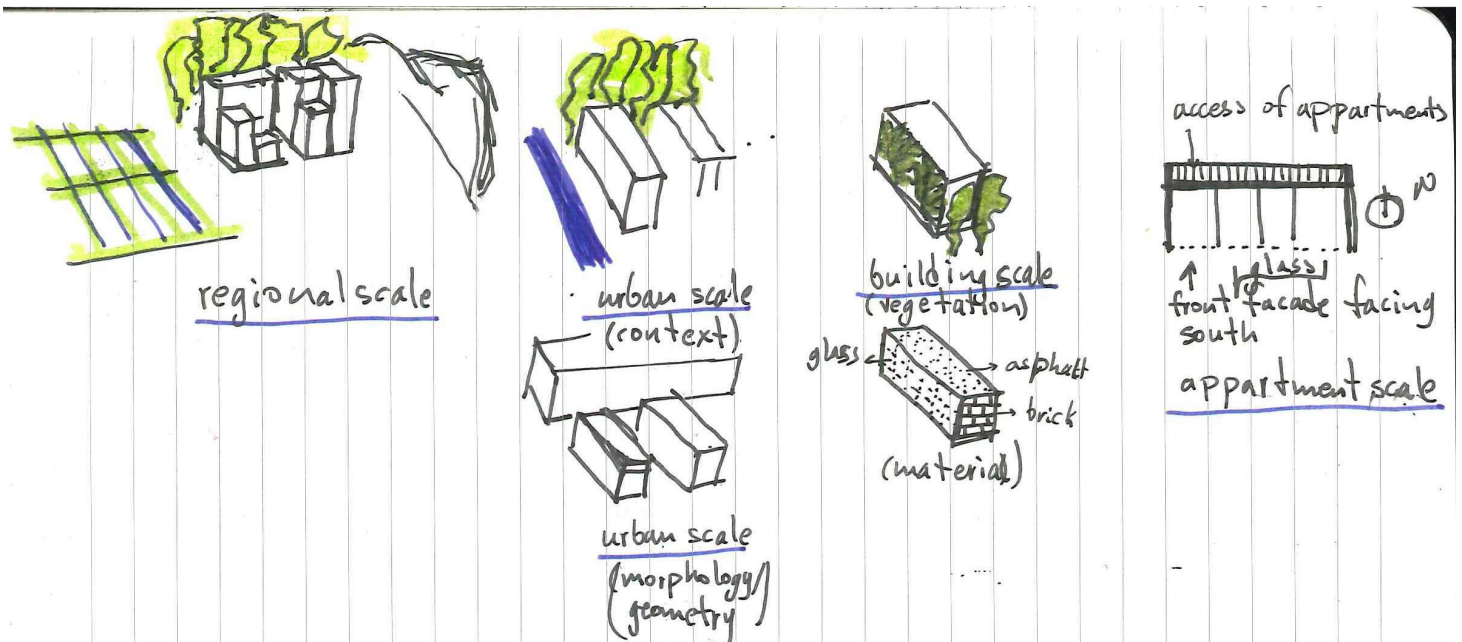 regional scale
urban scale
(context)
urban scale
(morphology/
geometry)
building scale
(vegetation)
glass
asphalt
brick
(material)
access of appartments
N
glass
front facade facing
south
appartment scale